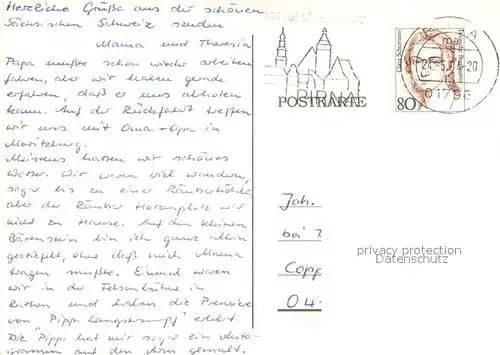 Herzliche Grüße aus der schönen
Sächsischen Schweiz senden
Mama und Theresia
Papa mußte schon wieder arbeiten
fahren, aber wir haben gerade
erfahren, daß er uns abholen
kann. Auf der Rückfahrt treffen
wir uns mit Oma + Opa in
Moritzburg.
Meistens hatten wir schönes
Wetter. Wir waren viel wandern,
sogar bis zu einer Räuberhöhle
aber der Räuber Hotzenplotz war
nicht zu Hause. Auf den kleinen
Bärenstein bin ich ganz allein
gestiefelt, ohne daß mich Mama
tragen mußte. Einmal waren
wir in der Felsenbühne in
Rathen und haben die Premiere
von "Pippi Langstrumpf" erlebt.
Die "Pippi" hat mir sogar ein Auto-
gramm auf den Arm gemalt.
PIRNA
POSTKARTE
Clara Schumann
80
01796
Joh.
bei
Copp
04-
privacy protection
Datenschutz